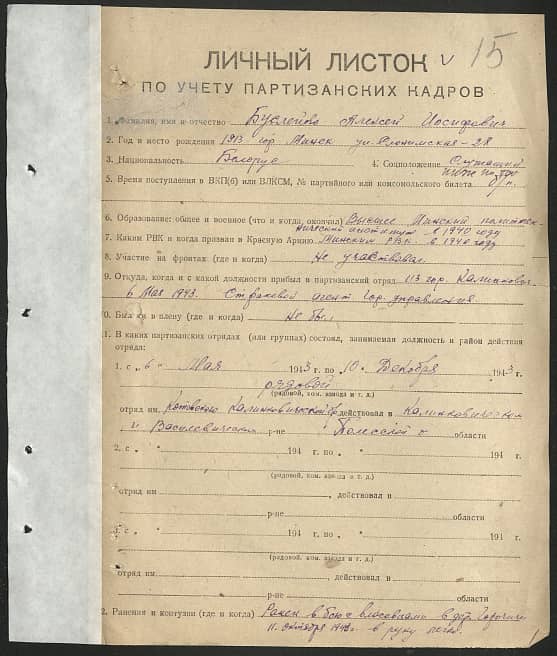 15
ЛИЧНЫЙ ЛИСТОК
ПО УЧЕТУ ПАРТИЗАНСКИХ КАДРОВ
1. Фамилия, имя и отчество Алексей Иосифович
2. Год и место рождения 1913 гор. Минск ул. 28
3. Национальность Белорус 4. Соцположение Служащий
5. Время поступления в ВКП(б) или ВЛКСМ, № партийного или комсомольского билета б/п.
6. Образование: общее и военное (что и когда, окончил) Высшее Минский политех-
нический институт в 1940 году
7. Каким РВК и когда призван в Красную Армию Минским РВК в 1940 году
8. Участие на фронтах (где и когда) Не участвовал
9. Откуда, когда и с какой должности прибыл в партизанский отряд из гор. Калинкович
6 Мая 1943. Страховой агент Гор. управления
0. Был ли в плену (где и когда) не был
1. В каких партизанских отрядах (или группах) состоял, занимаемая должность и район действия
отряда:
1. с „6“ Мая 1943 г. по „10“ Декабря 1943 г.
рядовой
(рядовой, ком. взвода и т. д.)
отряд им. Котовского Калинковичской бр действовал в Калинковичском
и Василевичском р-не Полесской области
2. с „ “ 194 г. по „ “ 194 г.
(рядовой, ком. взвода и т. д.)
отряд им. , действовал в
р-не области
3. с „ “ 194 г. по „ “ 194 г.
(рядовой, ком. взвода и т. д.)
отряд им. действовал в
р-не области
2. Ранения и контузии (где и когда) Ранен в бою с власовцами в дер.
11. октября 1943г. в руку легко.